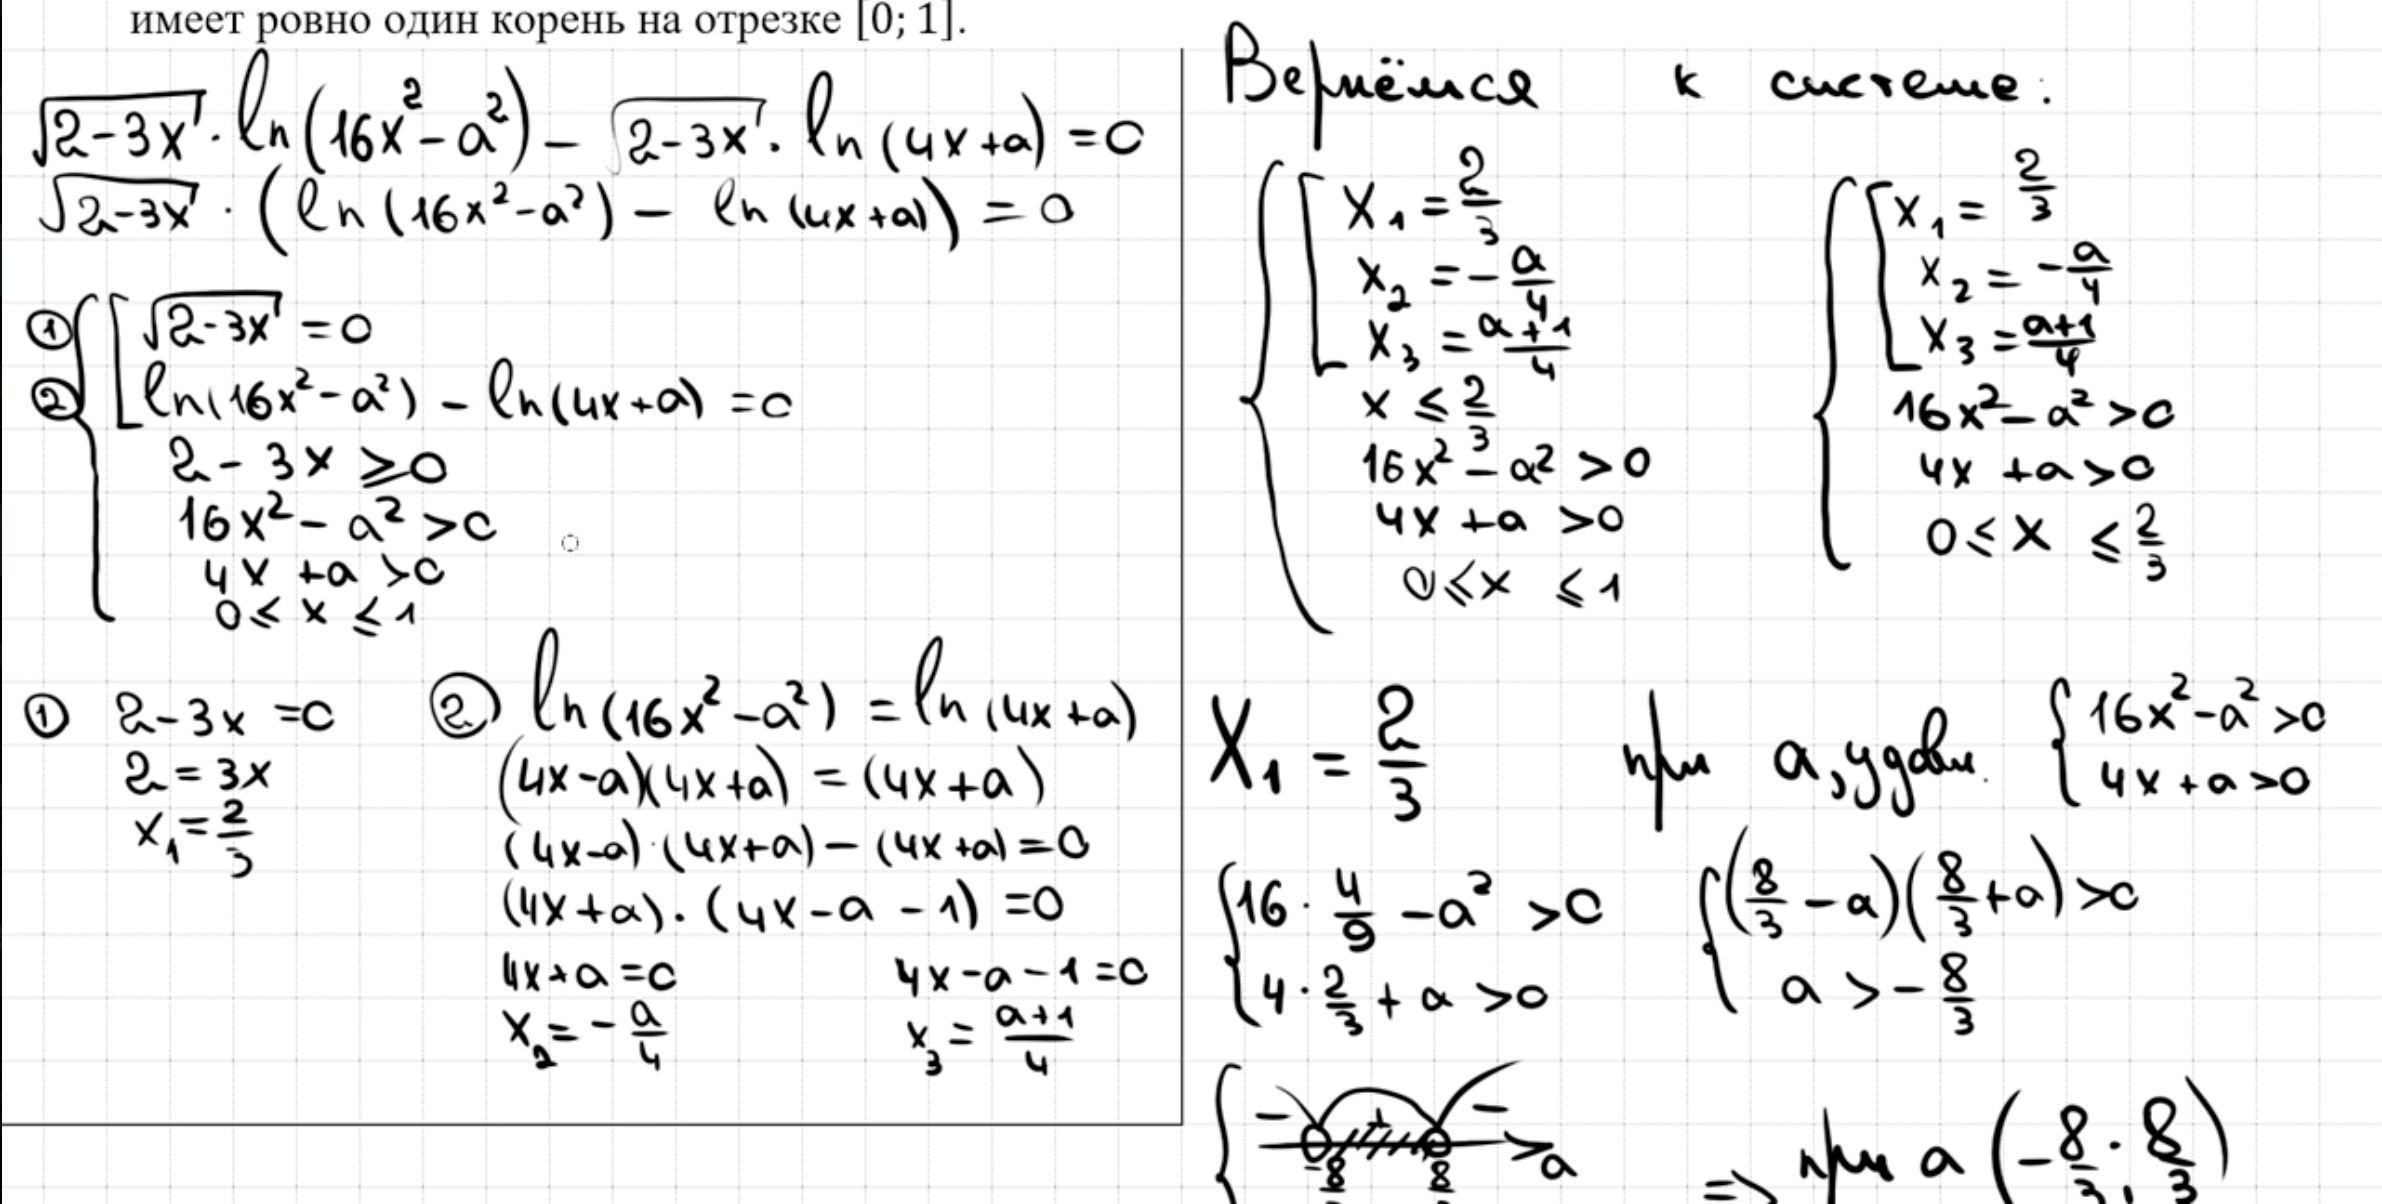 имеет ровно один корень на отрезке [0; 1].
√(2-3x) · ln(16x² - a²) - √(2-3x) · ln(4x+a) = 0
√(2-3x) · (ln(16x² - a²) - ln(4x+a)) = 0
① √(2-3x) = 0
② ln(16x² - a²) - ln(4x+a) = 0
2 - 3x ⩾ 0
16x² - a² > 0
4x + a > 0
0 ⩽ x ⩽ 1
① 2-3x = 0
2 = 3x
x₁ = 2/3
② ln(16x² - a²) = ln(4x+a)
(4x-a)(4x+a) = (4x+a)
(4x-a)·(4x+a) - (4x+a) = 0
(4x+a)·(4x-a-1) = 0
4x+a = 0 4x-a-1 = 0
x₂ = -a/4 x₃ = (a+1)/4
Вернёмся к системе:
x₁ = 2/3
x₂ = -a/4
x₃ = (a+1)/4
x ⩽ 2/3
16x² - a² > 0
4x + a > 0
0 ⩽ x ⩽ 1
x₁ = 2/3
x₂ = -a/4
x₃ = (a+1)/4
16x² - a² > 0
4x + a > 0
0 ⩽ x ⩽ 2/3
x₁ = 2/3 при a, удовл. { 16x² - a² > 0
4x + a > 0
16 · 4/9 - a² > 0
4 · 2/3 + a > 0
(8/3 - a)(8/3 + a) > 0
a > -8/3
- + - a
-8 8
=> при a (-8/3; 8/3)